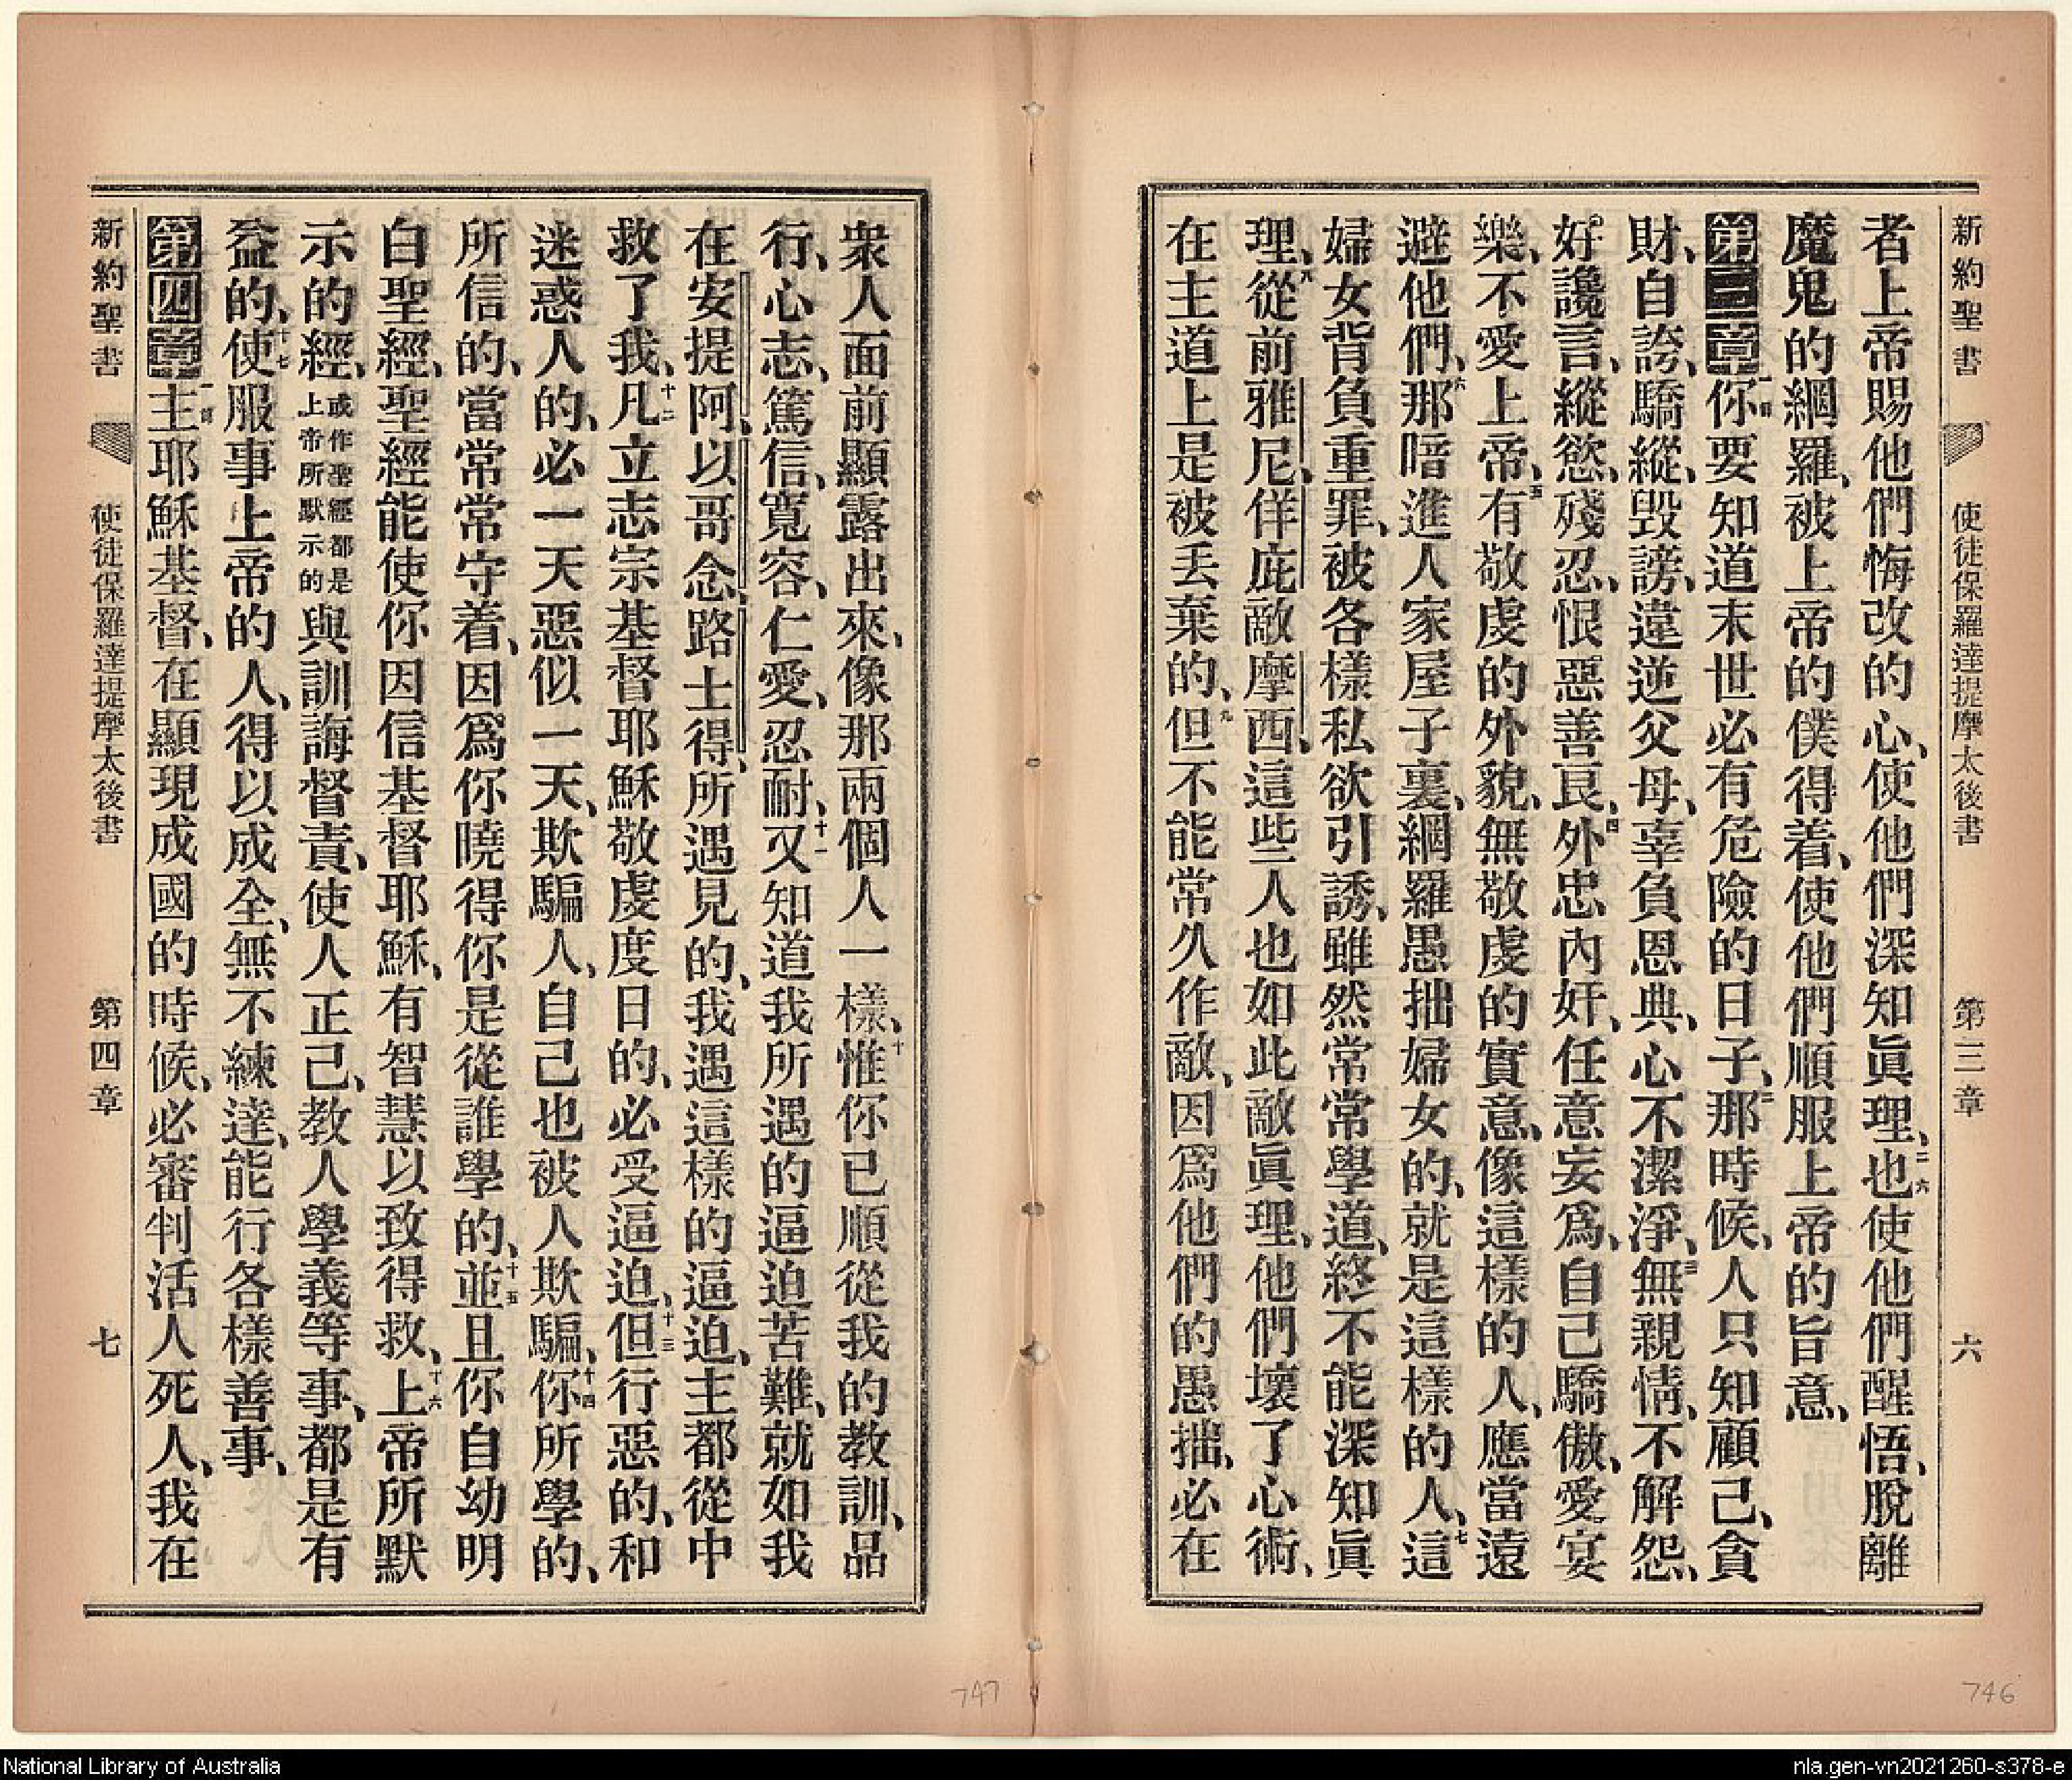 新約聖書 使徒保羅達提摩太後書 第三章 六
者上帝賜他們悔改的心、使他們深知眞理、二六也使他們醒悟、脫離
魔鬼的網羅、被上帝的僕得着、使他們順服上帝的旨意、
第三章一節你要知道末世必有危險的日子、二那時候、人只知顧己、貪
財、自誇、驕縱、毀謗、違逆父母、辜負恩典、心不潔淨、三無親情、不解怨、
好讒言、縱慾、殘忍、恨惡善良、四外忠內奸、任意妄爲、自己驕傲、愛宴
樂、不愛上帝、五有敬虔的外貌、無敬虔的實意、像這樣的人、應當遠
避他們、六那暗進人家屋子裏、網羅愚拙婦女的、就是這樣的人、七這
婦女背負重罪、被各樣私欲引誘、雖然常常學道、終不能深知眞
理、八從前雅尼、佯庇敵摩西、這些人也如此敵眞理、他們壞了心術、
在主道上是被丟棄的、九但不能常久作敵、因爲他們的愚拙、必在
衆人面前顯露出來、像那兩個人一樣、十惟你已順從我的教訓、品
行、心志、篤信、寬容、仁愛、忍耐、十一又知道我所遇的逼迫苦難、就如我
在安提阿、以哥念、路士得、所遇見的、我遇這樣的逼迫、主都從中
救了我、十二凡立志宗基督耶穌敬虔度日的、必受逼迫、十三但行惡的、和
迷惑人的、必一天惡似一天、欺騙人、自己也被人欺騙、十四你所學的、
所信的、當常常守着、因爲你曉得你是從誰學的、十五並且你自幼明
白聖經、聖經能使你因信基督耶穌、有智慧以致得救、十六上帝所默
示的經、或作聖經都是上帝所默示的與訓誨督責、使人正己、教人學義等事、都是有
益的、十七使服事上帝的人、得以成全、無不練達、能行各樣善事、
第四章一節主耶穌基督、在顯現成國的時候、必審判活人死人、我在
新約聖書 使徒保羅達提摩太後書 第四章 七
747
746
National Library of Australia
nla.gen-vn2021260-s378-e